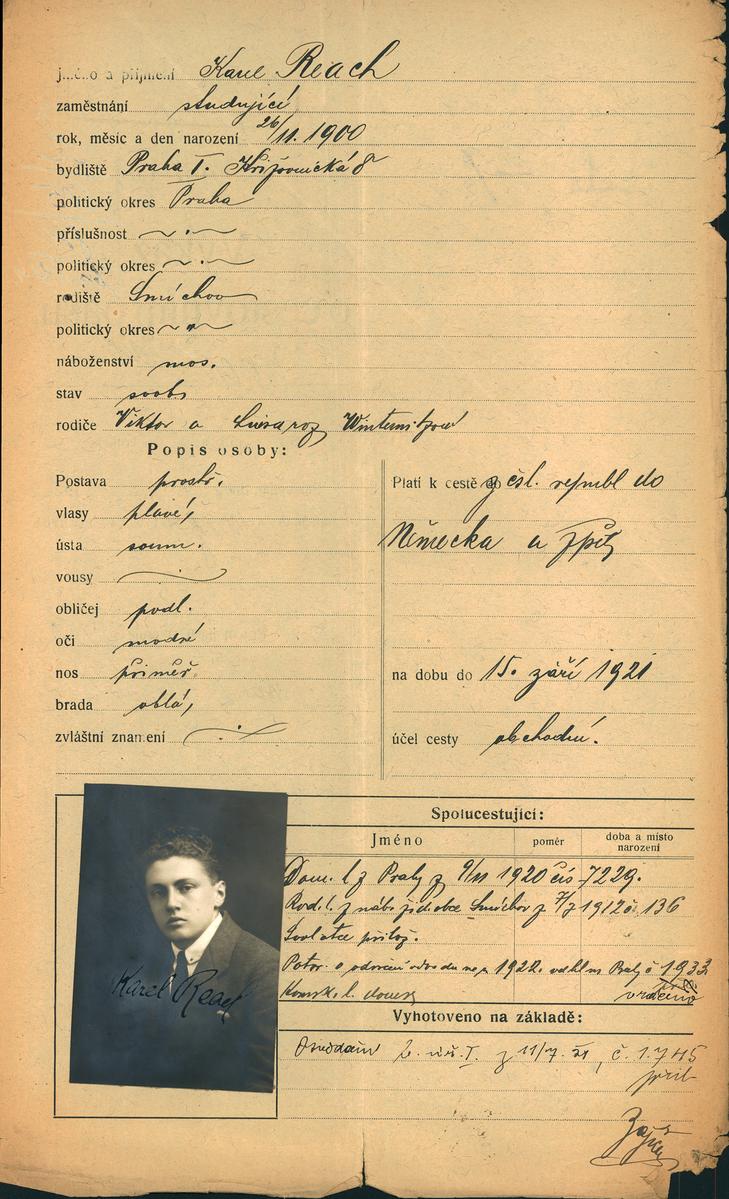 jméno a příjmení Karel Reach
zaměstnání studující
rok, měsíc a den narození 26/11. 1900
bydliště Praha I. Křižovnická 8
politický okres Praha
příslušnost ~ . ~
politický okres ~ . ~
rodiště Smíchov
politický okres ~ " ~
náboženství mos.
stav svob.
rodiče Viktor a Luisa roz. Winternitzová
Popis osoby:
Postava prostř.
vlasy plavé,
ústa soum.
vousy
obličej podl.
oči modré
nos přiměř.
brada oblá,
zvláštní znamení
Platí k cestě do z čsl. republ do
Německa a zpět
na dobu do 15. září 1921
účel cesty obchodní.
Spolucestující:
Jméno poměr doba a místo narození
Dom. l. z Prahy z 9/11 1920 čís 7229.
Rod. l. z náb. žid. obce Smíchov z 7/7 1912 č. 136
Svol. otce přilož.
Potvr. o odvodu na r. 1922. Prahy č 1933
vráceno
Karel Reach
Vyhotoveno na základě:
Osvědčení z 11/7. 21, č. 1.745
přil.